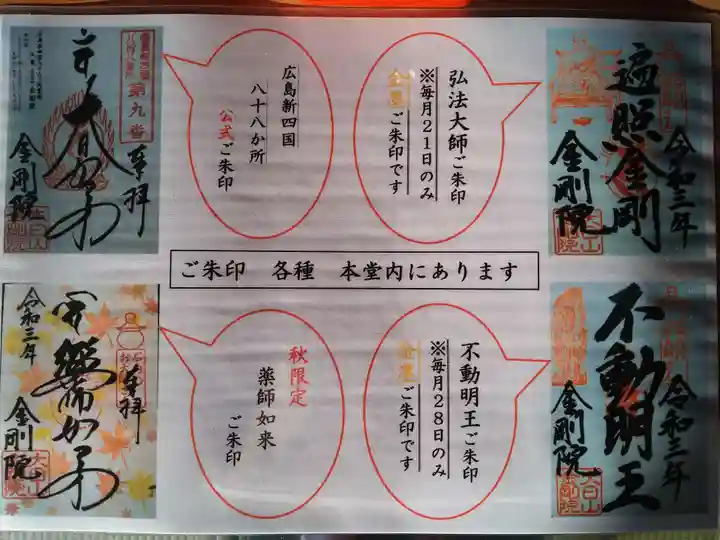 遍照金剛
令和三年
金剛院
弘法大師ご朱印
※毎月21日のみ
金墨ご朱印です
広島新四国
八十八か所
公式ご朱印
第九番
奉拝
金剛院
ご朱印 各種 本堂内にあります
不動明王
令和三年
金剛院
不動明王ご朱印
※毎月28日のみ
金墨ご朱印です
秋限定
薬師如来
ご朱印
奉拝
令和三年
金剛院